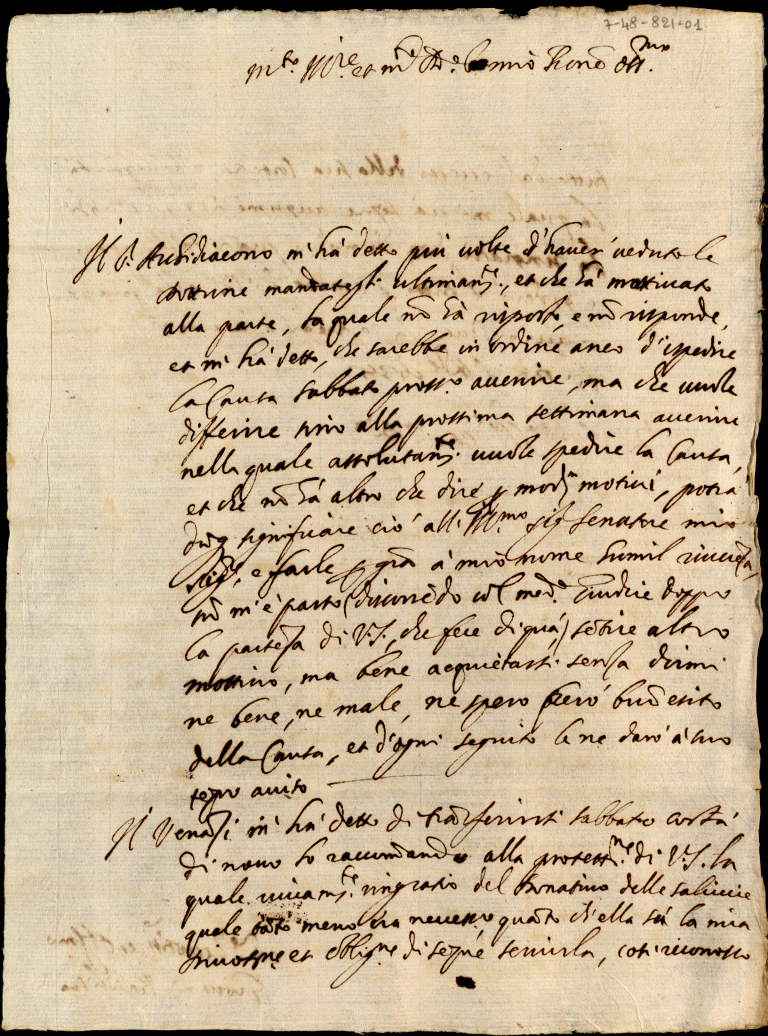 7-48-821-01
m.to Ill.re et m.to R.do Sig.r mio Pron̄e oss.mo
Il S.r Audidiacono m'hà detto più volte d'haver veduto le
dottrine mandategli ultimam.te, et che hà mottivato
alla parte, la quale nō hà risposto, e nō risponde,
et m'hà detto, che sarebbe in ordine anco d'ispedire
la Causa sabbato pross.o avenire, ma che vuole
differire sino alla prossima settimana avenire
nella quale assolutam.te vuole spedire la Causa,
et che nō hà altro che dire p mod.i motivi, potrà
dūq significare ciò all'Ill.mo Sig.r Senatore mio
Sig.re, e farle p grā à mio nome humil riverēza,
nō m'è parso (discorrēdo col med.o Giudice doppo
la partēza di V.S., che fece di quà) sētire altro
mottivo, ma bene acquietarsi senza dirmi
ne bene, ne male, ne spero però buō esito
della Causa, et d'ogni seguito le ne darò à suo
tēpo aviso
Il Venazi m'hà detto di trāsferirsi sabbato costà
di novo lo raccomando alla protett.ne di V.S. la
quale vivam.te ringratio del donativo delle salsiccie
quale tāto meno era necess.o quāto ch'ella sà la mia
et oblig.ne di sēpre servirla, così riconosco